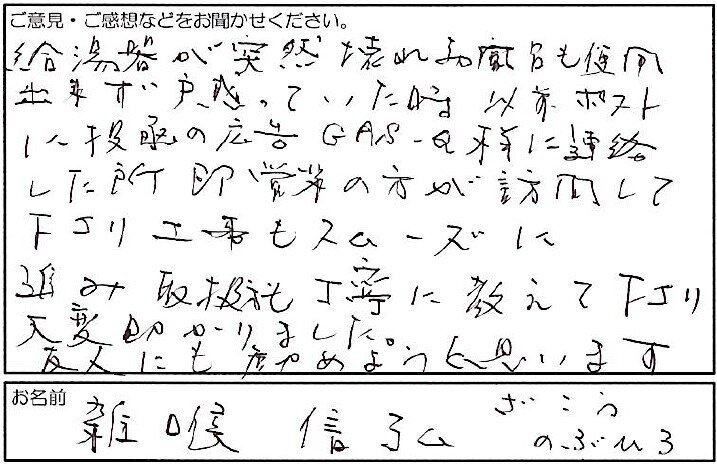 ご意見・ご感想などをお聞かせください。
給湯器が突然壊れお風呂も使用
出来ず戸惑っていた時 以前ポスト
に投函の広告 GAS-Q様に連絡
した所即営業の方が訪問して
下さり工事もスムーズに
進み取扱も丁寧に教えて下さり
大変助かりました。
友人にも勧めようと思います
お名前
雑喉 信弘
ざこう
のぶひろ